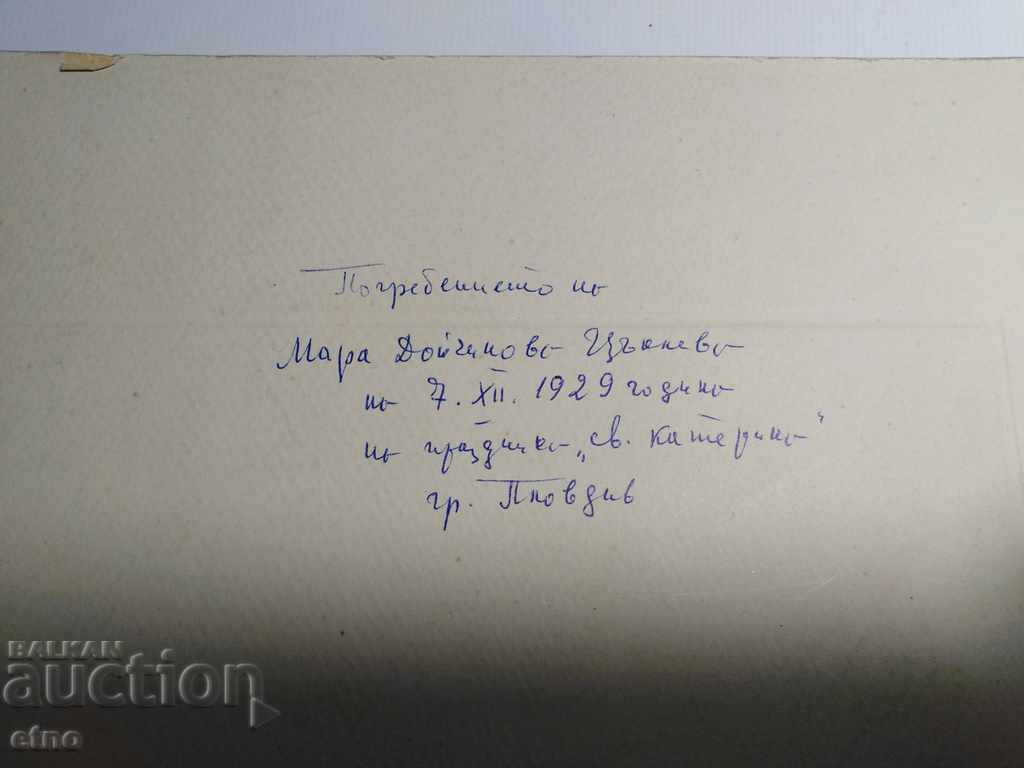 Погребението на
Мара Дойчинова Цъклева
на 7. XII. 1929 година
на празника „св. Катерина"
гр. Пловдив
BALKAN
auction
etno